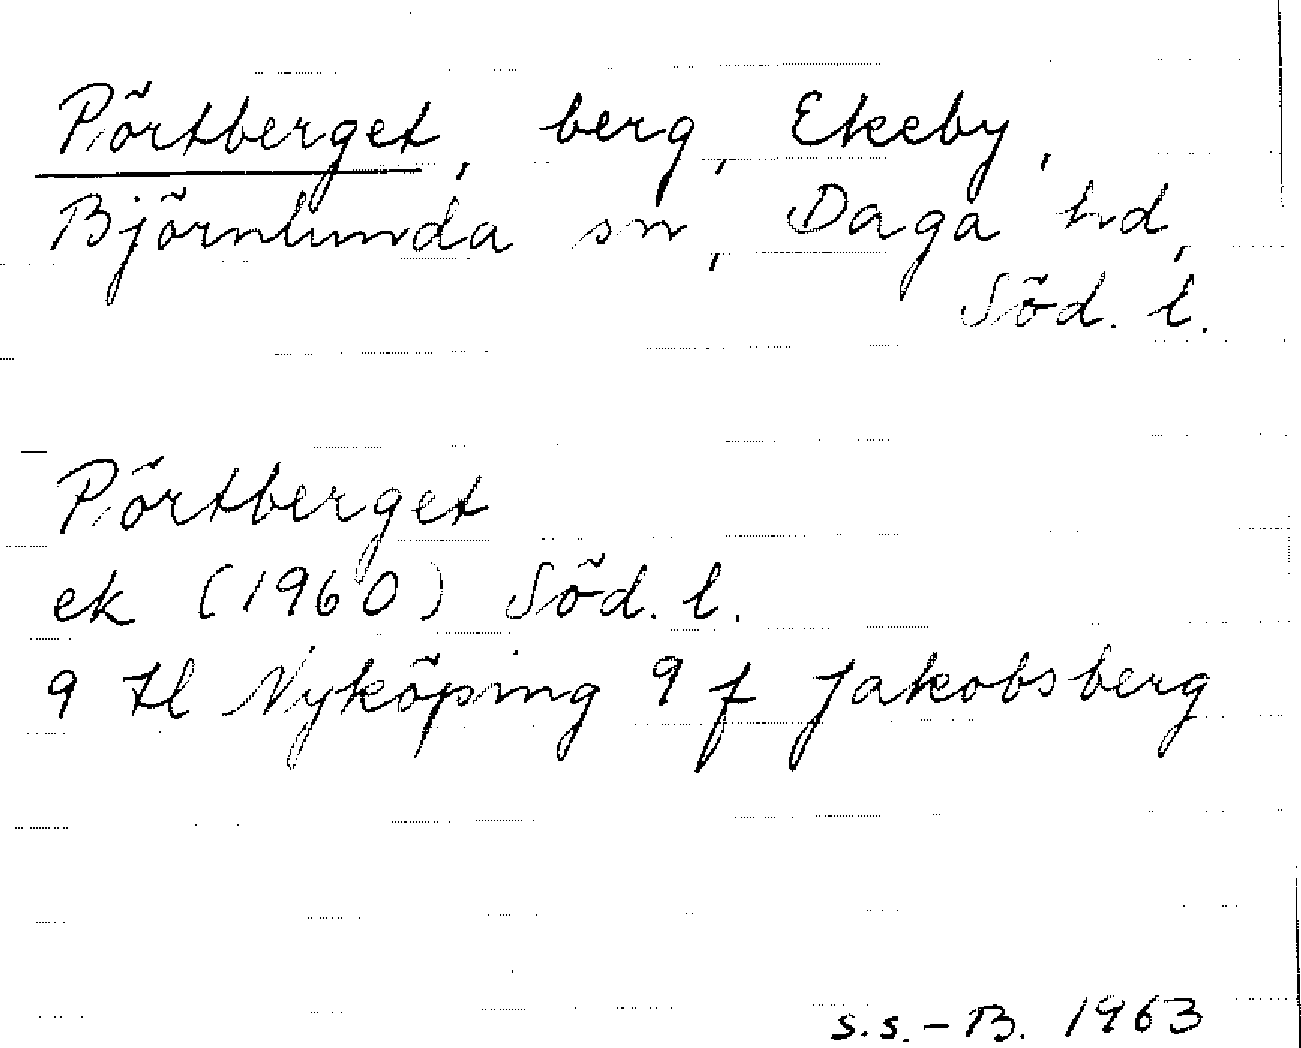 Pörtberget, berg, Ekeby,
Björnlunda sn, Daga hd,
Söd. l.
Pörtberget
ek (1960) Söd. l.
9 H Nyköping 9 f Jakobsberg
s.s.-B. 1963